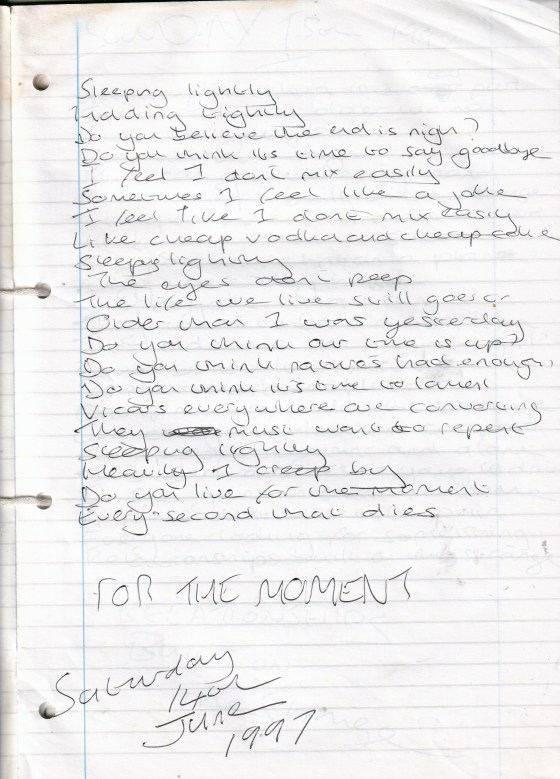 Sleeping lightly
Do you believe the end is nigh?
Do you think it's time to say goodbye
I feel I don't mix easily
Sometimes I feel like a joke
I feel like I don't mix easily
Like cheap vodka and cheap coke
Sleeping lightly
The eyes don't peep
The life we live still goes on
Older than I was yesterday
Do you think our time is up?
Do you think nature's had enough,
Do you think it's time to lament
Vicars everywhere are converting
They must want to repent
Sleeping lightly
Heavily I creep by
Do you live for the moment
Every second that dies
FOR THE MOMENT
Saturday
14th
June
1997